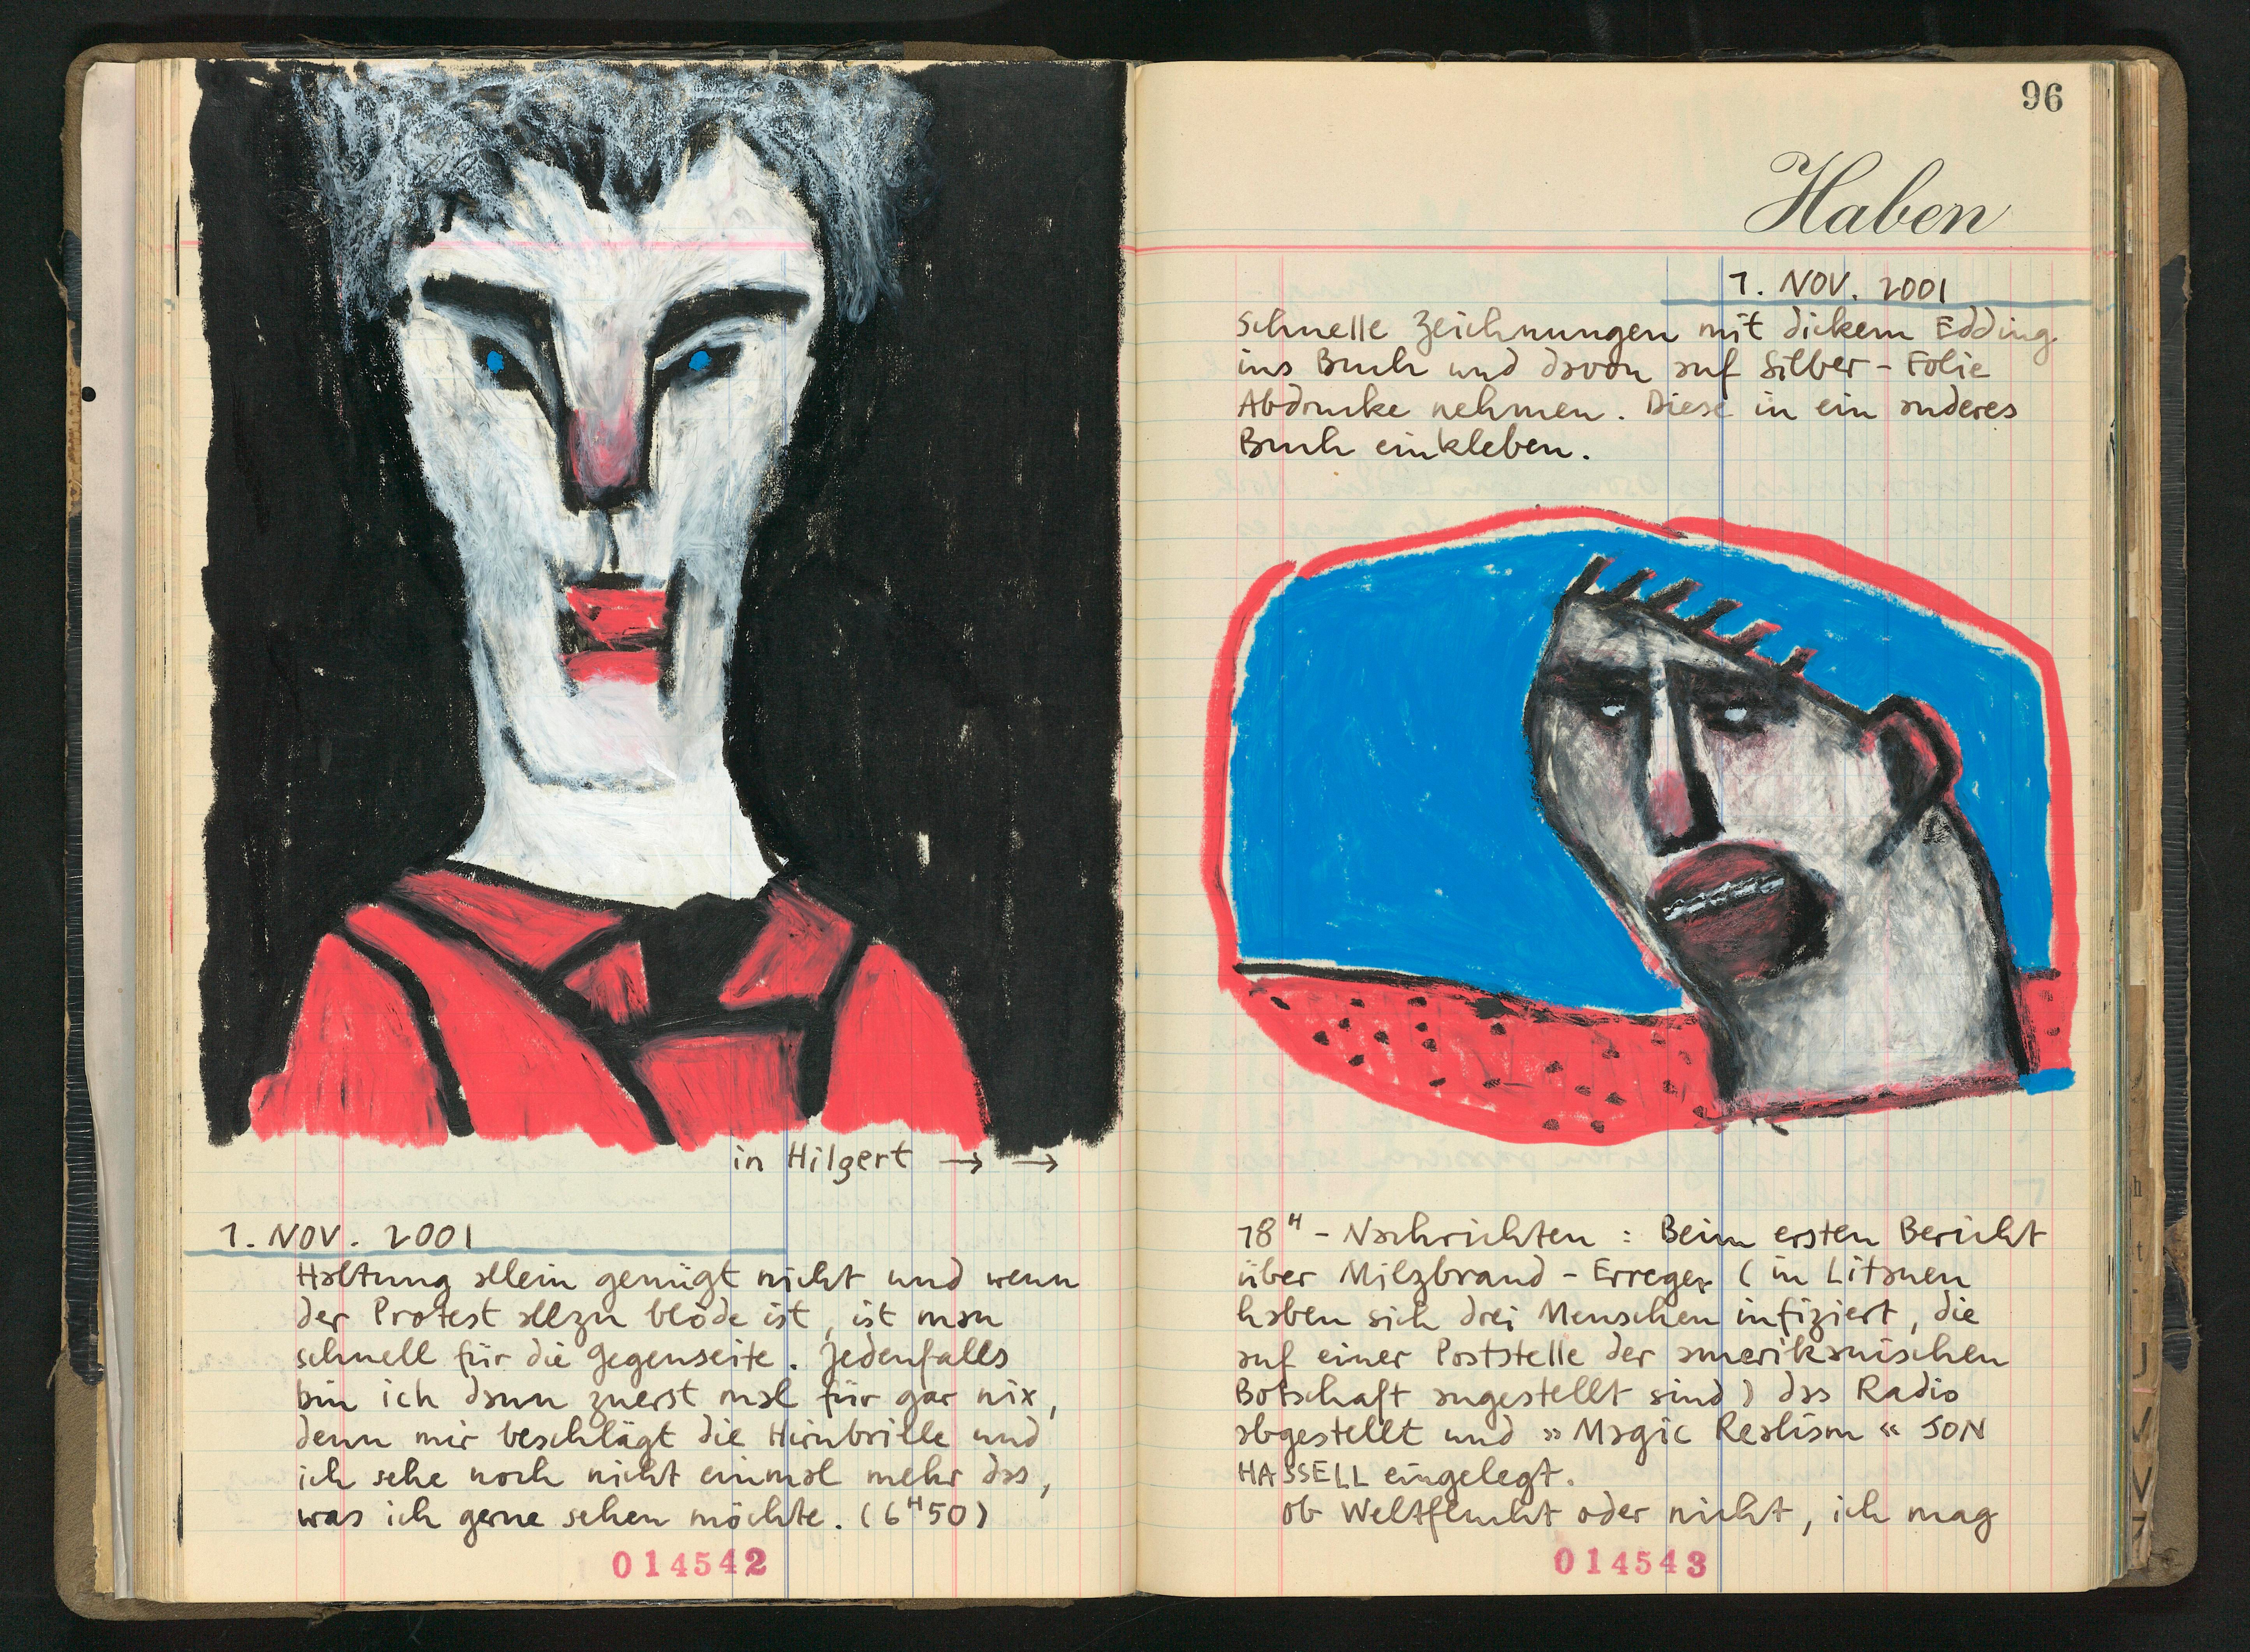 in Hilgert → →
1. NOV. 2001
Haltung allein genügt nicht und wenn
der Protest allzu blöde ist, ist man
schnell für die Gegenseite. Jedenfalls
bin ich dann zuerst mal für gar nix,
denn mir beschlägt die Hirnbrille und
ich sehe noch nicht einmal mehr das,
was ich gerne sehen möchte. (6ᴴ50)
014542
96
Haben
1. NOV. 2001
Schnelle Zeichnungen mit dickem Edding
ins Buch und davon auf Silber-Folie
Abdrucke nehmen. Diese in ein anderes
Buch einkleben.
18ᴴ - Nachrichten : Beim ersten Bericht
über Milzbrand-Erreger (in Litauen
haben sich drei Menschen infiziert, die
auf einer Poststelle der amerikanischen
Botschaft angestellt sind) das Radio
abgestellt und »Magic Realism« JON
HASSELL eingelegt.
Ob Weltflucht oder nicht, ich mag
014543